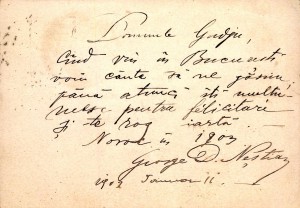 Domnule
Cînd vin în București
voiu căuta să ne găsim
până atunci îți mulțu-
mesc pentru felicitare
și te rog iartă.
Noroc în 1903
George D.
1903 Januar 11